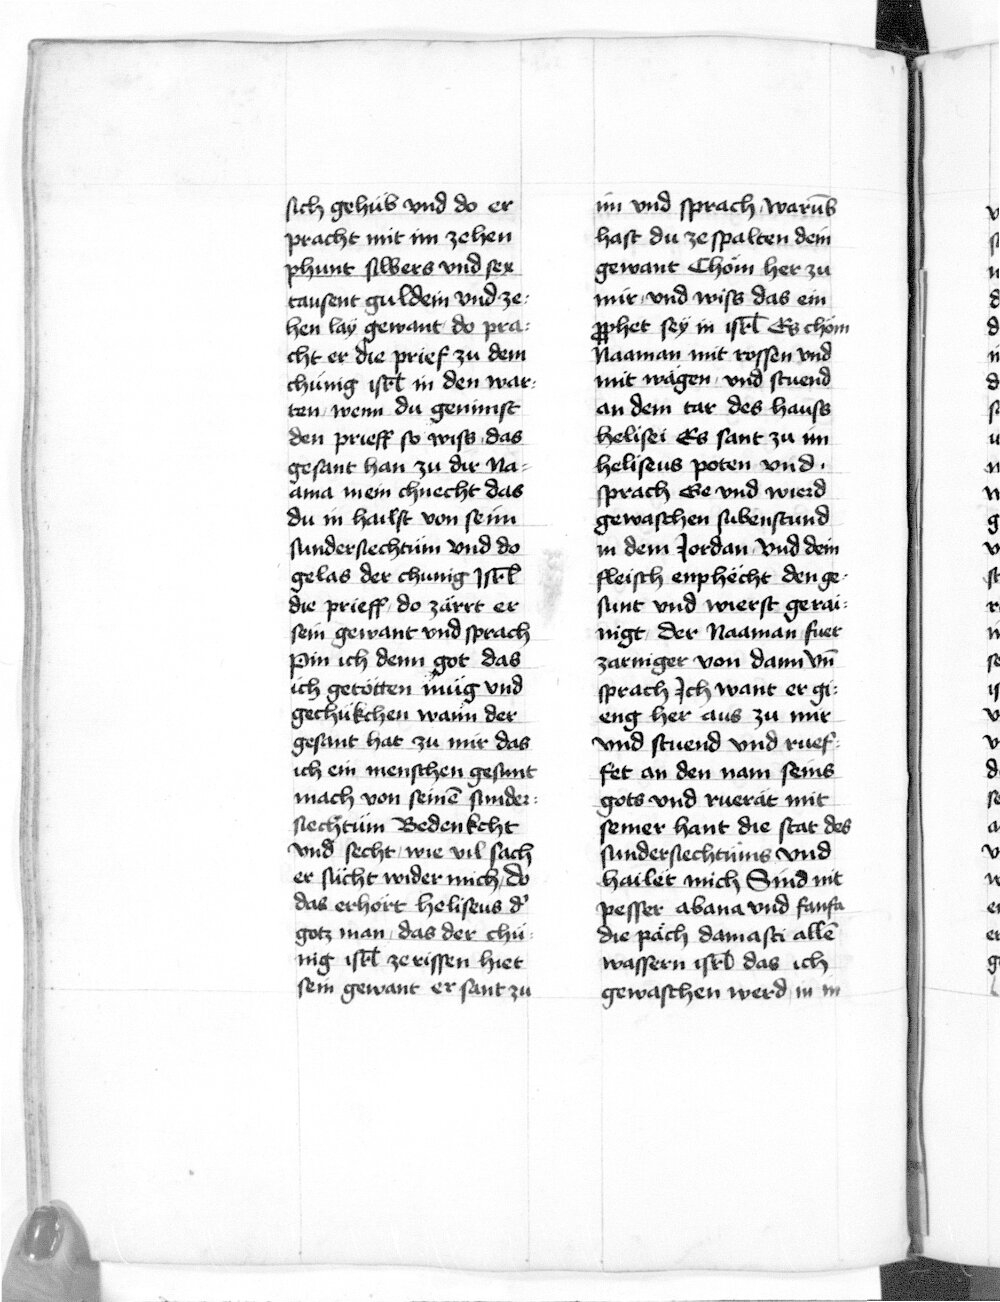 sich gehüb vnd do er
pracht mit im zehen
phunt silbers vnd sex
tausent guldein vnd ze-
hen lay gewant / do pra-
cht er die prief zu dem
chünig isrl̄ in den war-
ten / wenn du genimst
den prieff so wiss das
gesant han zu dir Na-
ama mein chnecht das
du in hailst von seim
sundersiechtüm vnd do
gelas der chunig Isrl̄
die prieff / do zärrt er
sein gewant vnd sprach
Pin ich denn got das
ich getötten müg vnd
gechükchen wann der
gesant hat zu mir das
ich ein menschen gesunt
mach von seinē sunder-
siechtüm Bedenkcht
vnd secht / wie vil sach
er sücht wider mich / do
das erhört heliseus d'
gotz man / das der chü-
nig isrl̄ zerissen hiet
sein gewant er sant zu
im vnd sprach / warūb
hast du zespalten dein
gewant Chöm her zu
mir / vnd wiss das ein
prophet sey in isrl̄ Es chöm
Naaman mit rossen vnd
mit wägen / vnd stuend
an dem tar des hauss
helisei Es sant zu im
heliseus poten vnd
sprach Ge vnd wierd
gewaschen sibenstund
in dem Jordan / vnd dein
fleisch enphëcht den ge-
sunt vnd wierst gerai-
nigt / der Naaman fuer
zarniger von dann vn̄
sprach Ich want er gi-
eng her aus zu mir
vnd stuend vnd ruef-
fet an den nam seins
gots vnd ruerät mit
seiner hant die stat des
sundersiechtüms vnd
hailet mich Sind nit
pesser abana vnd fanfa
die päch damasci allē
wassern isrl̄ das ich
gewaschen werd in in